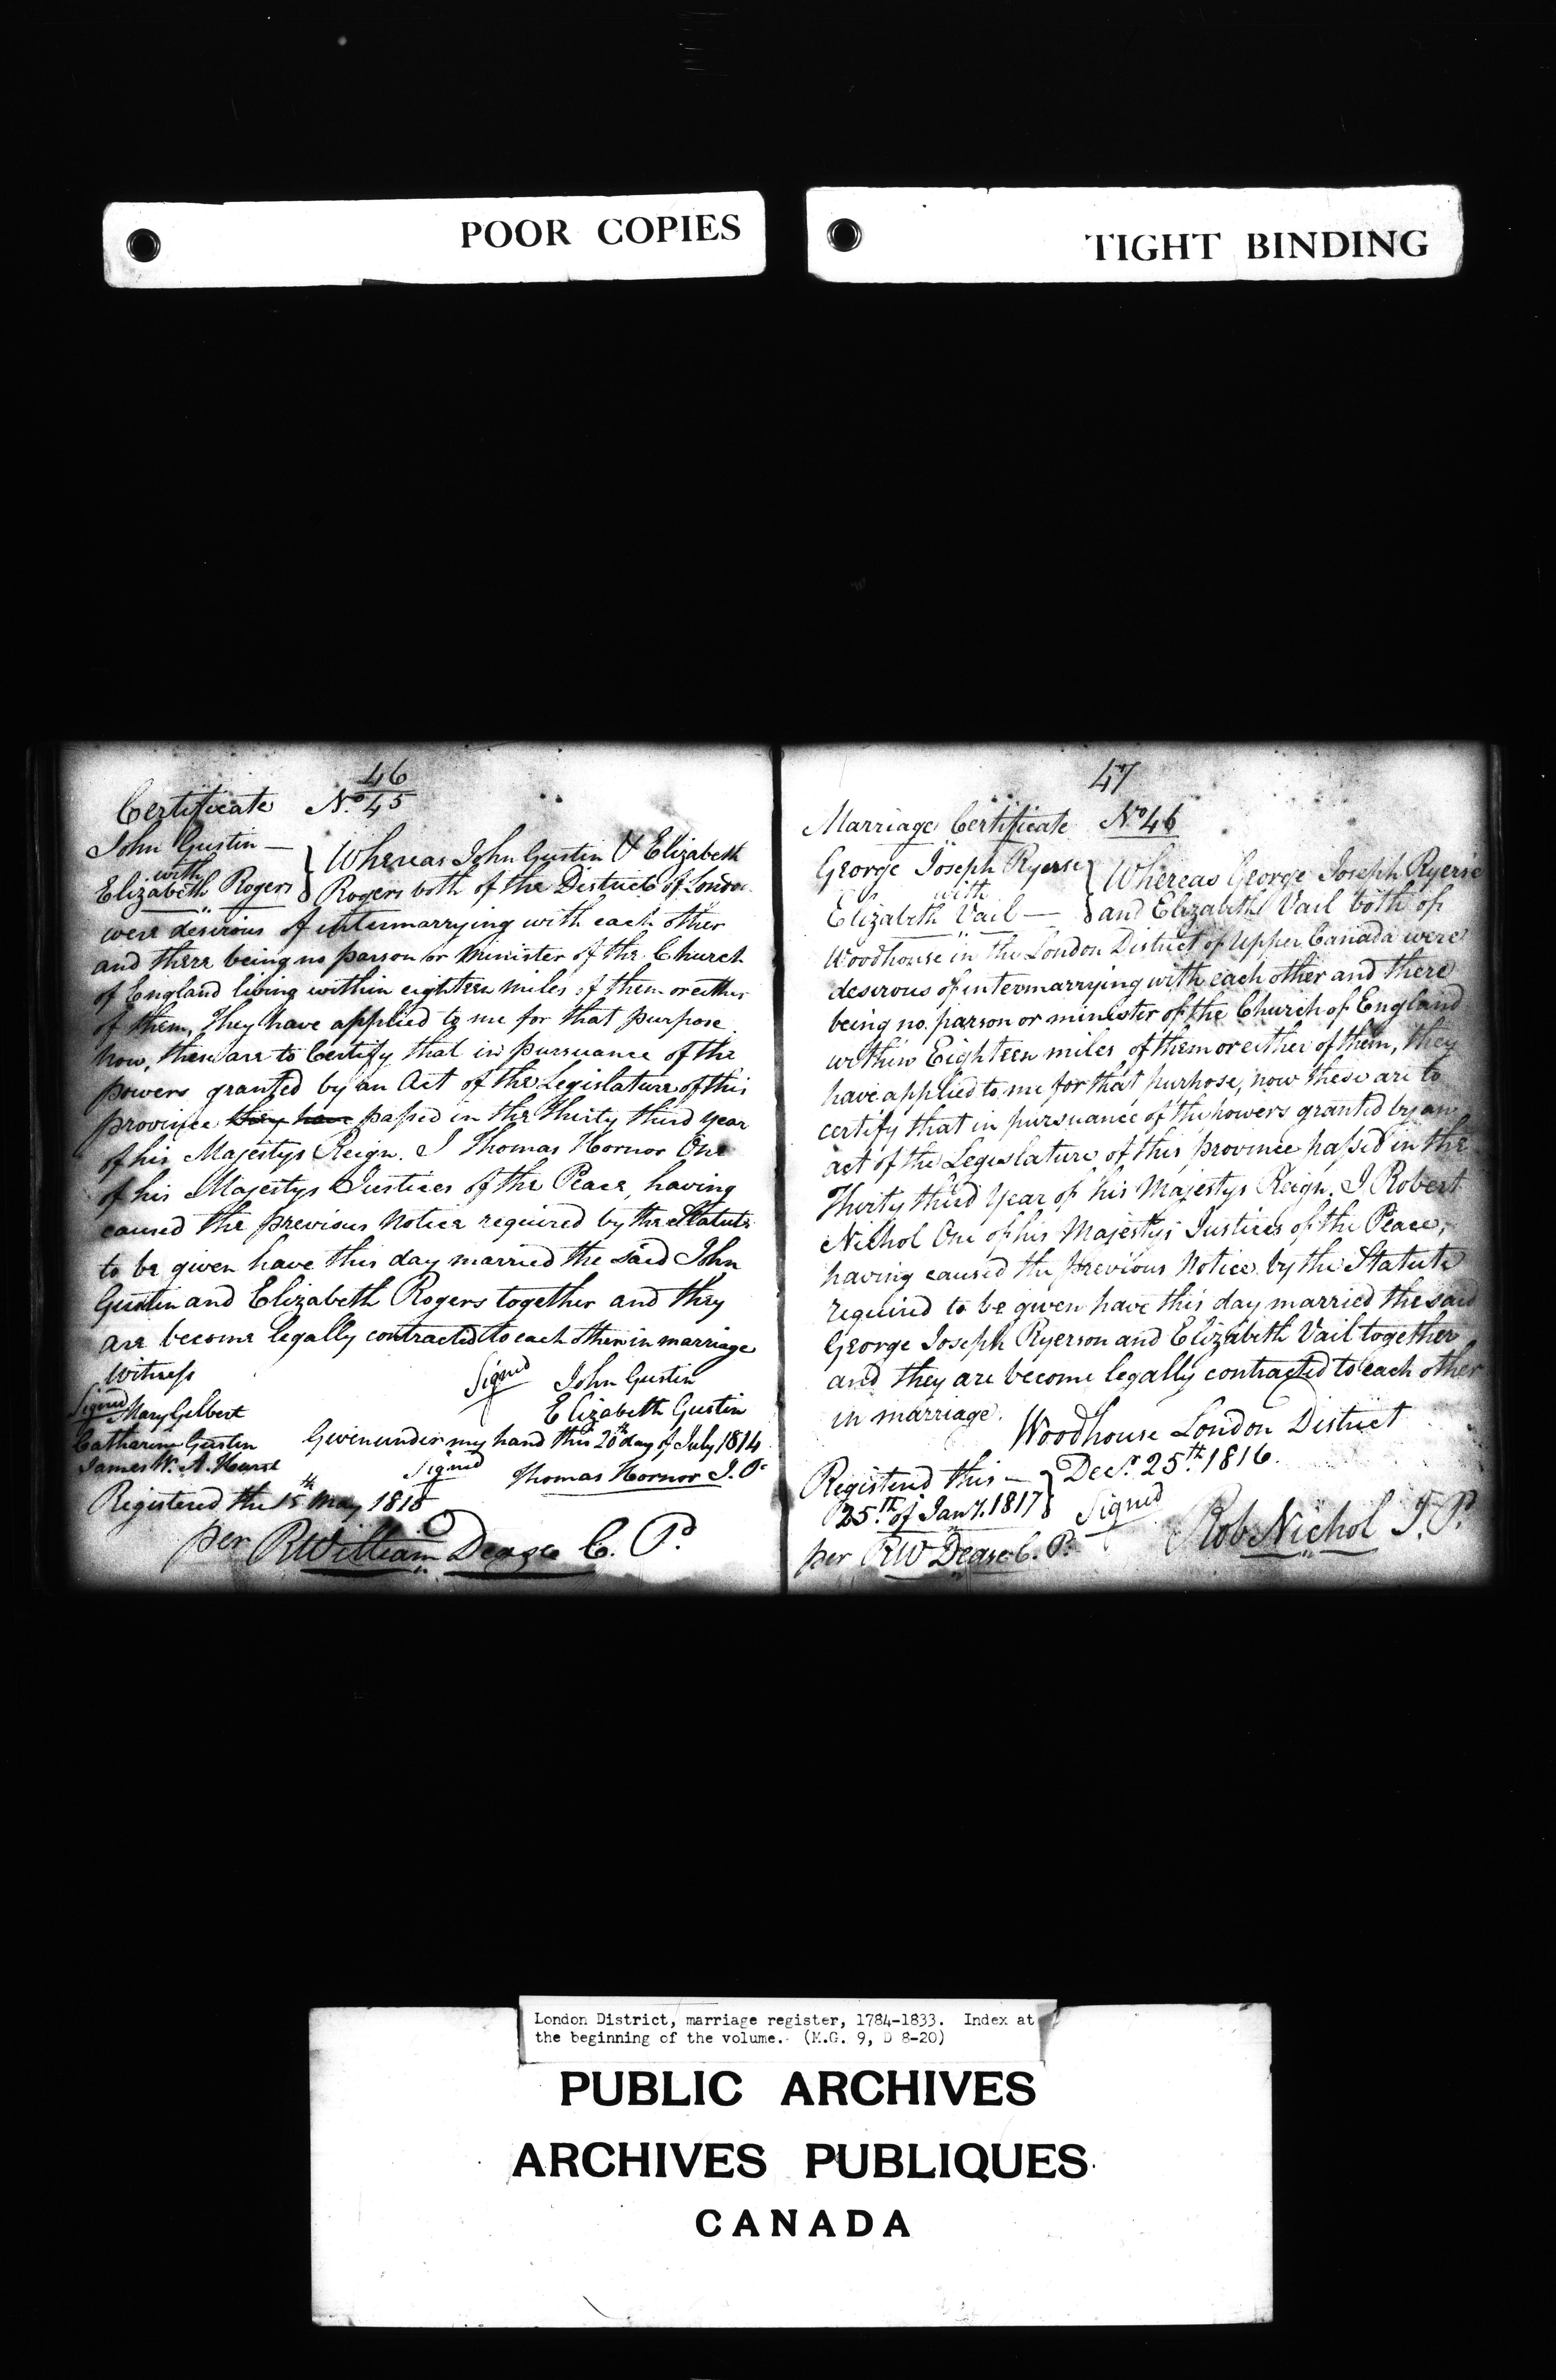 POOR COPIES
TIGHT BINDING
46
Certificate No. 45
John Gustin —
with
Elizabeth Rogers
Whereas John Gustin & Elizabeth
Rogers both of the District of London
were desirous of intermarrying with each other
and there being no parson or Minister of the Church
of England living within eighteen miles of them or either
of them, They have applied to me for that purpose.
Now, these are to Certify that in pursuance of the
powers granted by an Act of the Legislature of this
province they have passed in the Thirty third year
of his Majestys Reign. I Thomas Hornor One
of his Majestys Justices of the Peace, having
caused the previous Notice required by the Statute
to be given have this day married the said John
Gustin and Elizabeth Rogers together and they
are become legally contracted to each other in marriage
Witness
Signed John Gustin
Signed Mary Gilbert
Elizabeth Gustin
Catharine Gustin
Given under my hand this 20th day of July 1814
James W. A.
Signed Thomas Hornor J. P.
Registered the 15th May 1815
per RWilliam Dease C. P.
47
Marriage Certificate No 46
George Joseph Ryerse
with
Elizabeth Vail —
Whereas George Joseph Ryerse
and Elizabeth Vail both of
Woodhouse in the London District of Upper Canada were
desirous of intermarrying with each other and there
being no parson or minister of the Church of England
within Eighteen miles of them or either of them, they
have applied to me for that purpose, now these are to
certify that in pursuance of the powers granted by an
act of the Legislature of this province passed in the
Thirty third Year of his Majestys Reign. I Robert
Nichol One of his Majestys Justices of the Peace,
having caused the previous Notice by the Statute
required to be given have this day married the said
George Joseph Ryerson and Elizabeth Vail together
and they are become legally contracted to each other
in marriage.
Woodhouse London District
Registered this —
Decr. 25th 1816.
25th of Jany. 1817
Signed
per RW Dease C. P.
Rob Nichol J. P.
London District, marriage register, 1784-1833. Index at
the beginning of the volume. (M.G. 9, D 8-20)
PUBLIC ARCHIVES
ARCHIVES PUBLIQUES
CANADA